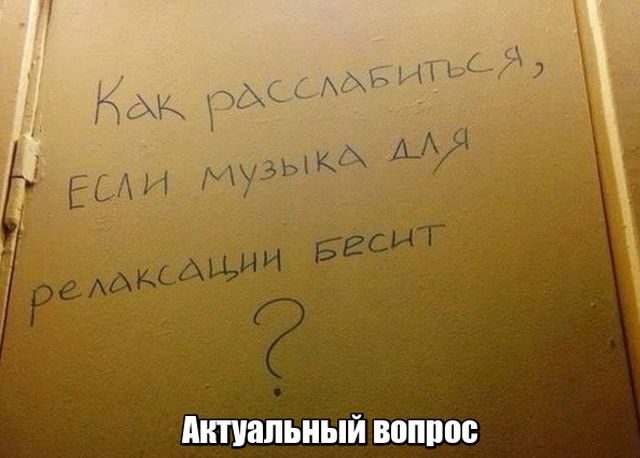 Как расслабиться,
если музыка для
релаксации бесит
?
Актуальный вопрос